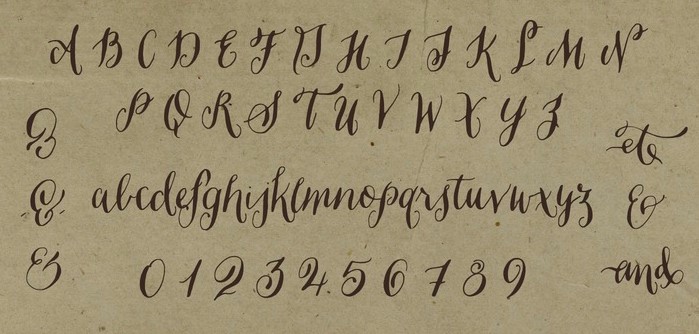 A B C D E F G H I J K L M N
P Q R S T U V W X Y Z
et
&
abcdefghijklmnopqrstuvwxyz
&
&
&
0 1 2 3 4 5 6 7 8 9
and